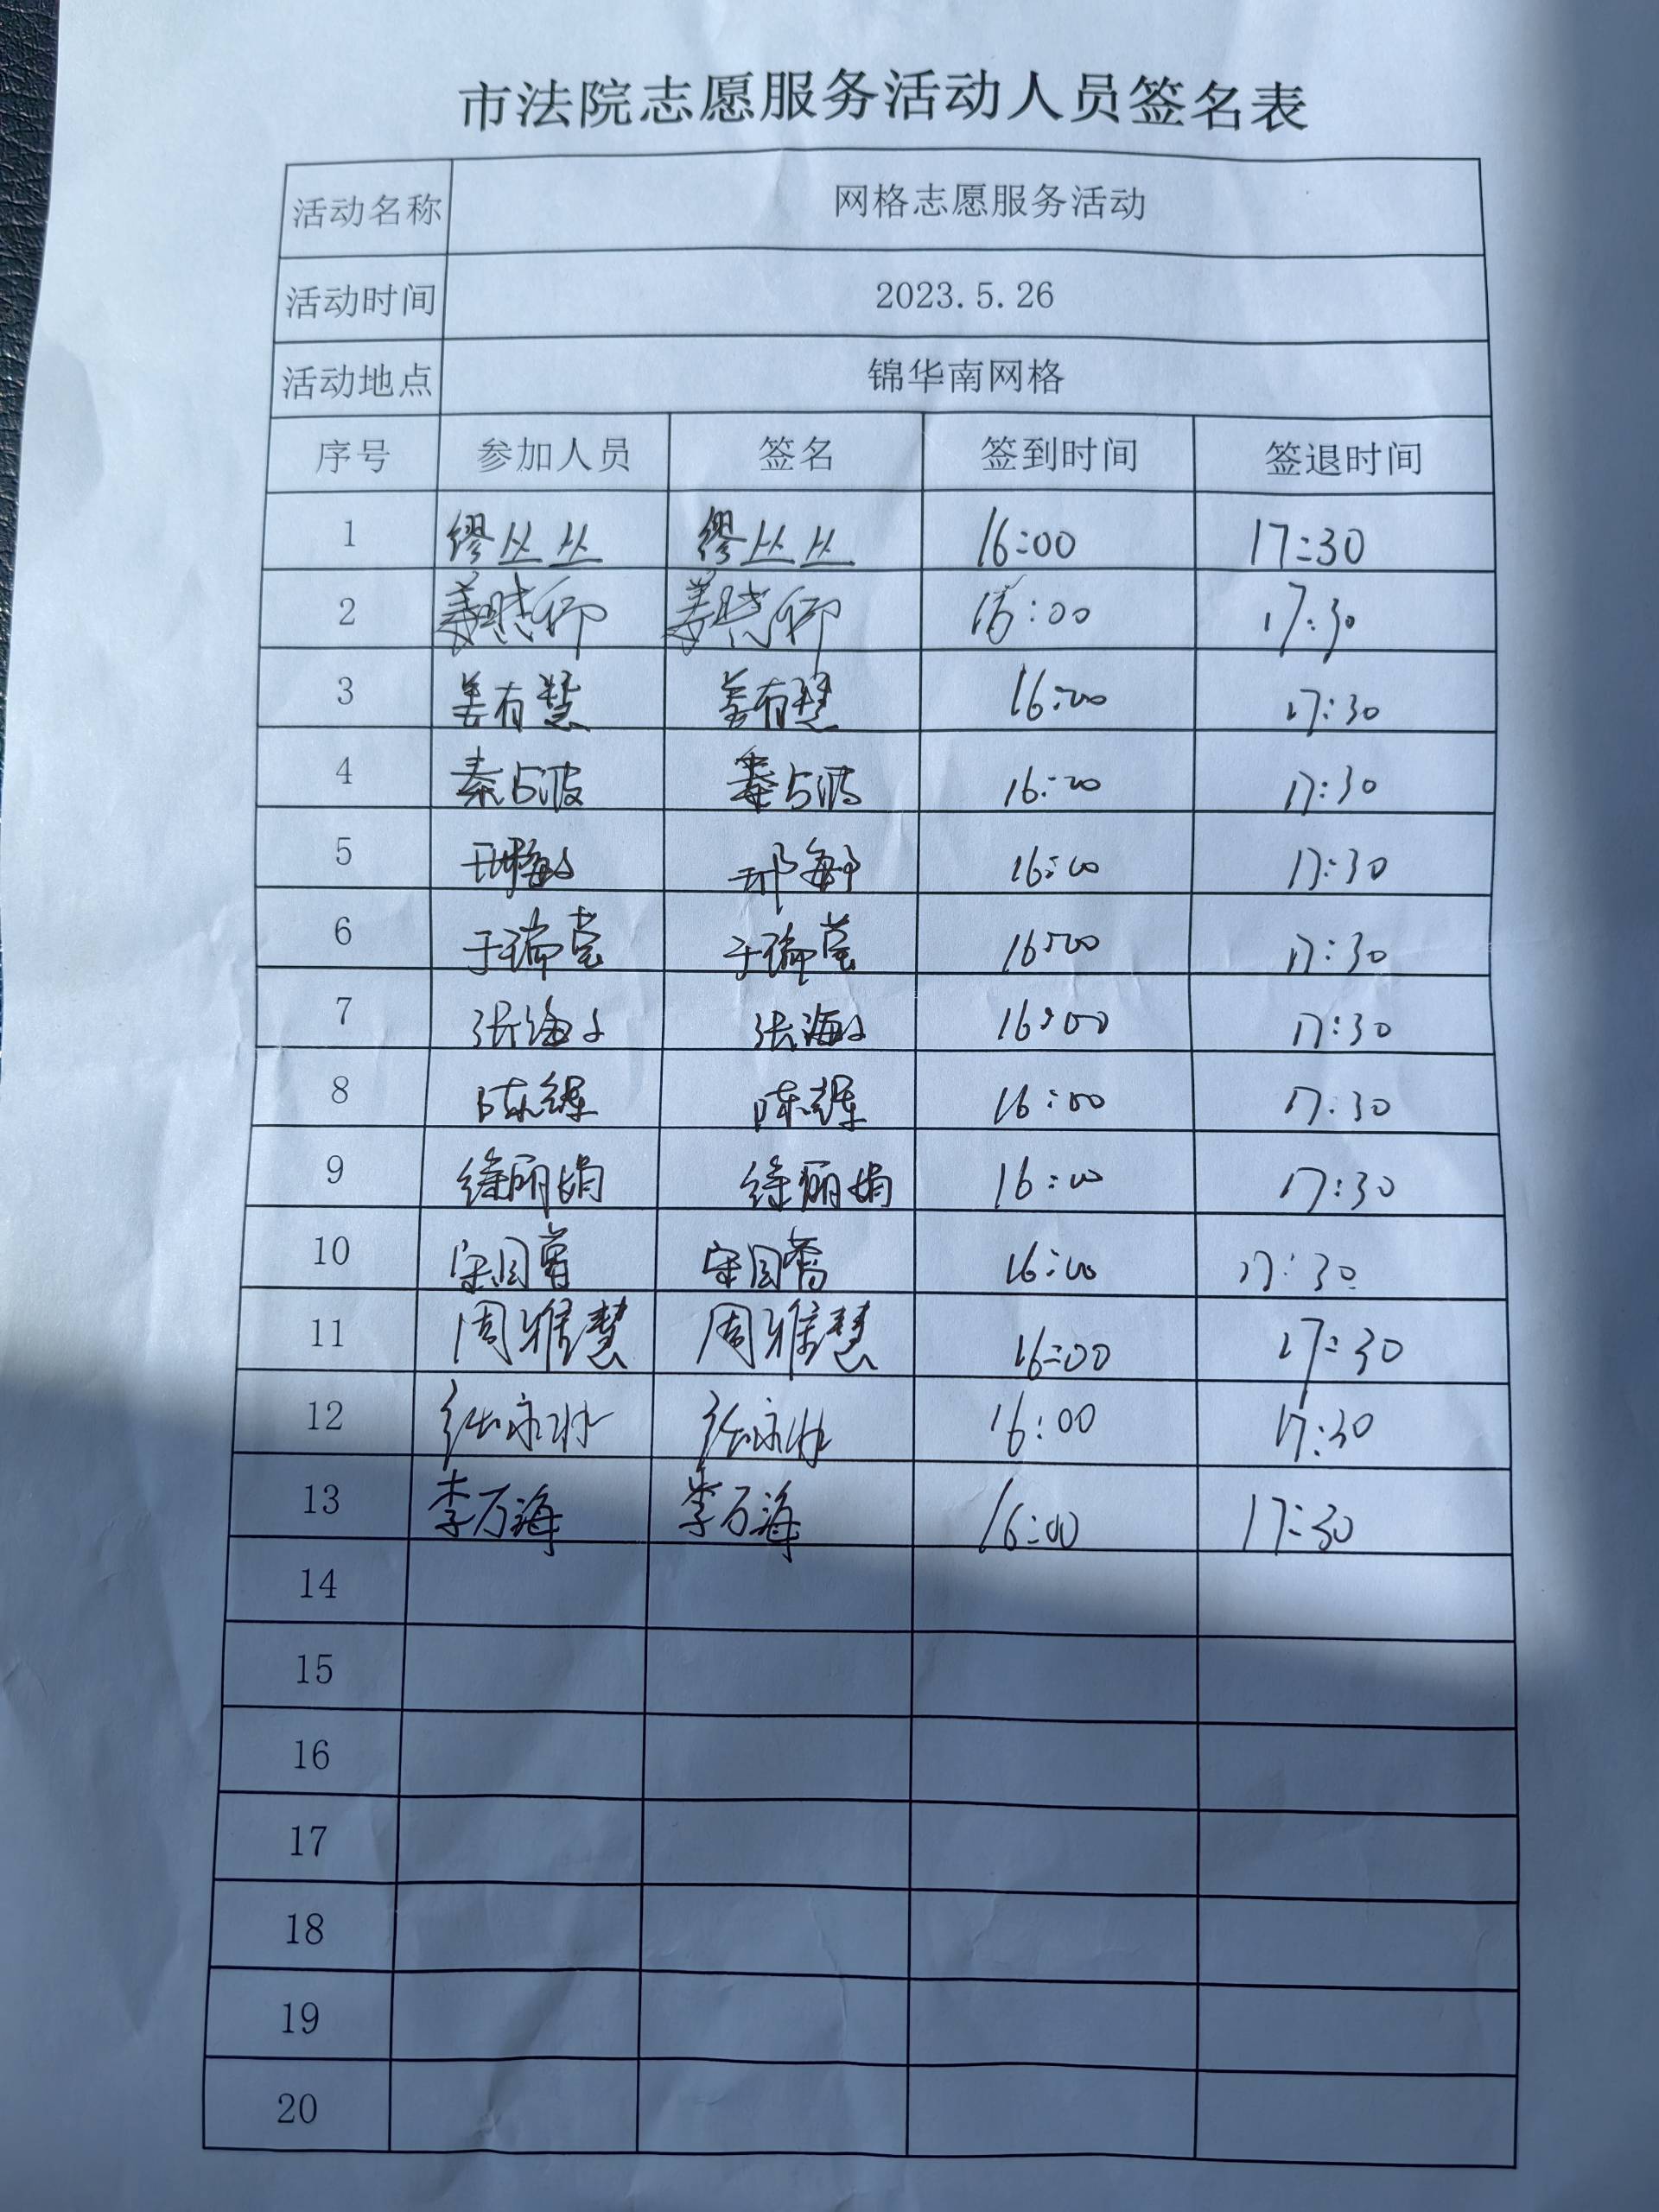 市法院志愿服务活动人员签名表
活动名称 网格志愿服务活动
活动时间 2023.5.26
活动地点 锦华南网格
序号 参加人员 签名 签到时间 签退时间
1 缪丛丛 缪丛丛 16:00 17:30
2 16:00 17:30
3 姜有慧 姜有慧 16:00 17:30
4 秦占波 秦占波 16:00 17:30
5 16:00 17:30
6 于瑞莹 于瑞莹 16:00 17:30
7 16:00 17:30
8 16:00 17:30
9 徐丽娟 徐丽娟 16:00 17:30
10 16:00 17:30
11 周雅慧 周雅慧 16:00 17:30
12 16:00 17:30
13 李万海 李万海 16:00 17:30
14
15
16
17
18
19
20